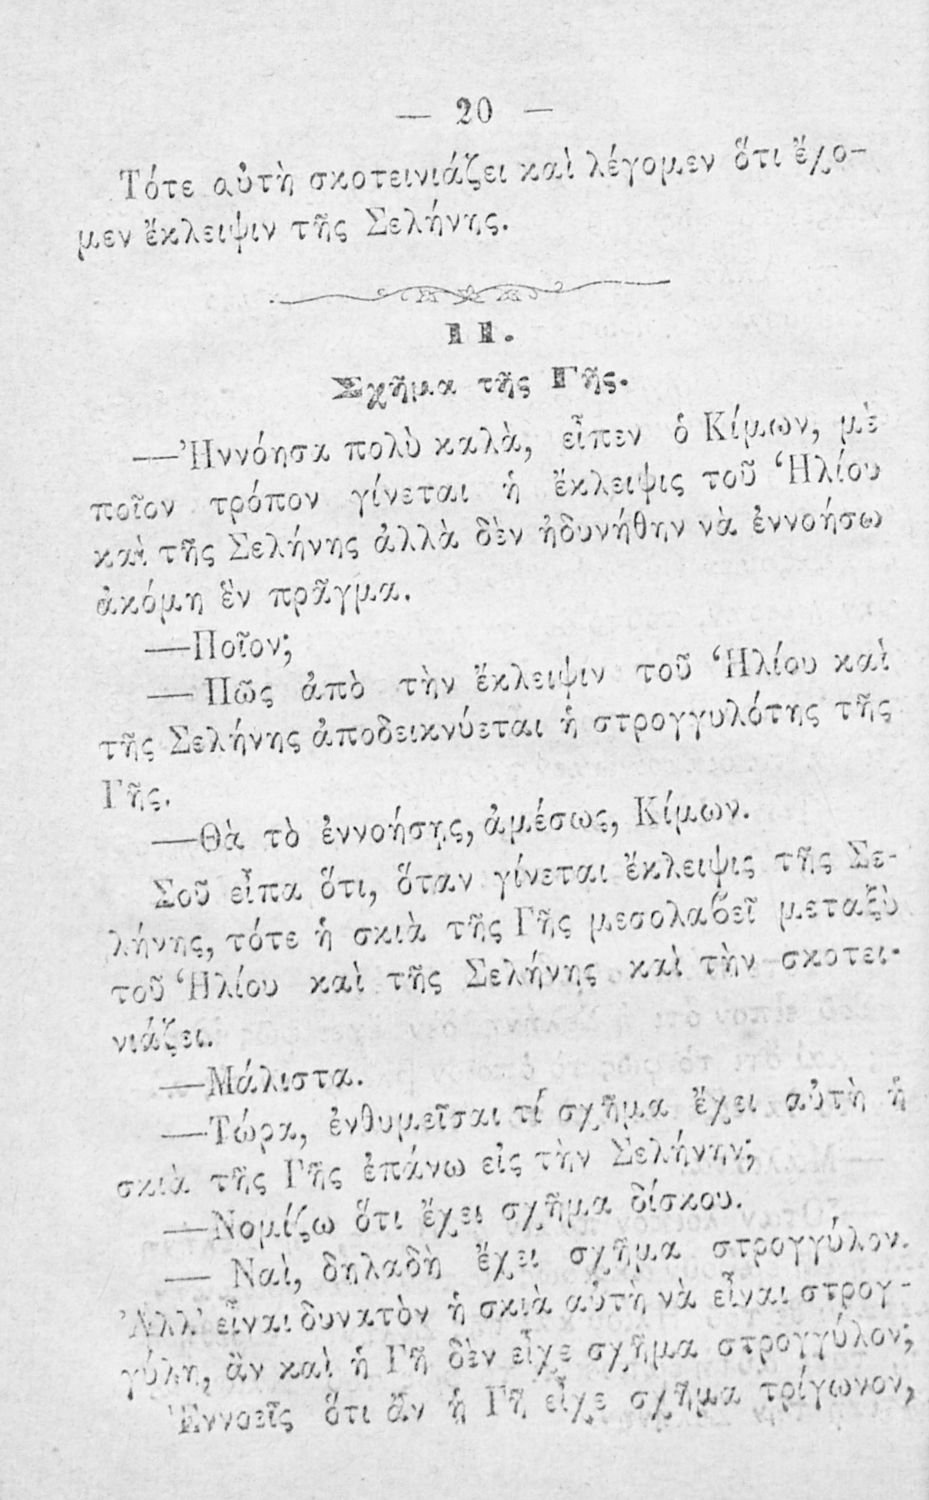 — 20 —
Τότε αὐτὴ σκοτεινιάζει καὶ λέγομεν ὅτι ἔχο-
μεν ἔκλειψιν τῆς Σελήνης.
II.
Σχῆμα τῆς Γῆς.
—Ἠννόησα πολὺ καλὰ, εἶπεν ὁ Κίμων, μὲ
ποῖον τρόπον γίνεται ἡ ἔκλειψις τοῦ Ἡλίου
καὶ τῆς Σελήνης ἀλλὰ δὲν ἠδυνήθην νὰ ἐννοήσω
ἀκόμη ἓν πρᾶγμα.
—Ποῖον;
—Πῶς ἀπὸ τὴν ἔκλειψιν τοῦ Ἡλίου καὶ
τῆς Σελήνης ἀποδεικνύεται ἡ στρογγυλότης τῆς
Γῆς.
—Θὰ τὸ ἐννοήσῃς, ἀμέσως, Κίμων.
Σοῦ εἶπα ὅτι, ὅταν γίνεται ἔκλειψις τῆς Σε-
λήνης, τότε ἡ σκιὰ τῆς Γῆς μεσολαβεῖ μεταξὺ
τοῦ Ἡλίου καὶ τῆς Σελήνης καὶ τὴν σκοτει-
νιάζει.
—Μάλιστα.
—Τώρα, ἐνθυμεῖσαι τί σχῆμα ἔχει αὐτὴ ἡ
σκιὰ τῆς Γῆς ἐπάνω εἰς τὴν Σελήνην;
—Νομίζω ὅτι ἔχει σχῆμα δίσκου.
— Ναὶ, δηλαδὴ ἔχει σχῆμα στρογγύλον.
Ἀλλ' εἶναι δυνατὸν ἡ σκιὰ αὐτὴ νὰ εἶναι στρογ-
γύλη, ἂν καὶ ἡ Γῆ δὲν εἶχε σχῆμα στρογγύλον;
Ἐννοεῖς ὅτι ἂν ἡ Γῆ εἶχε σχῆμα τρίγωνον,